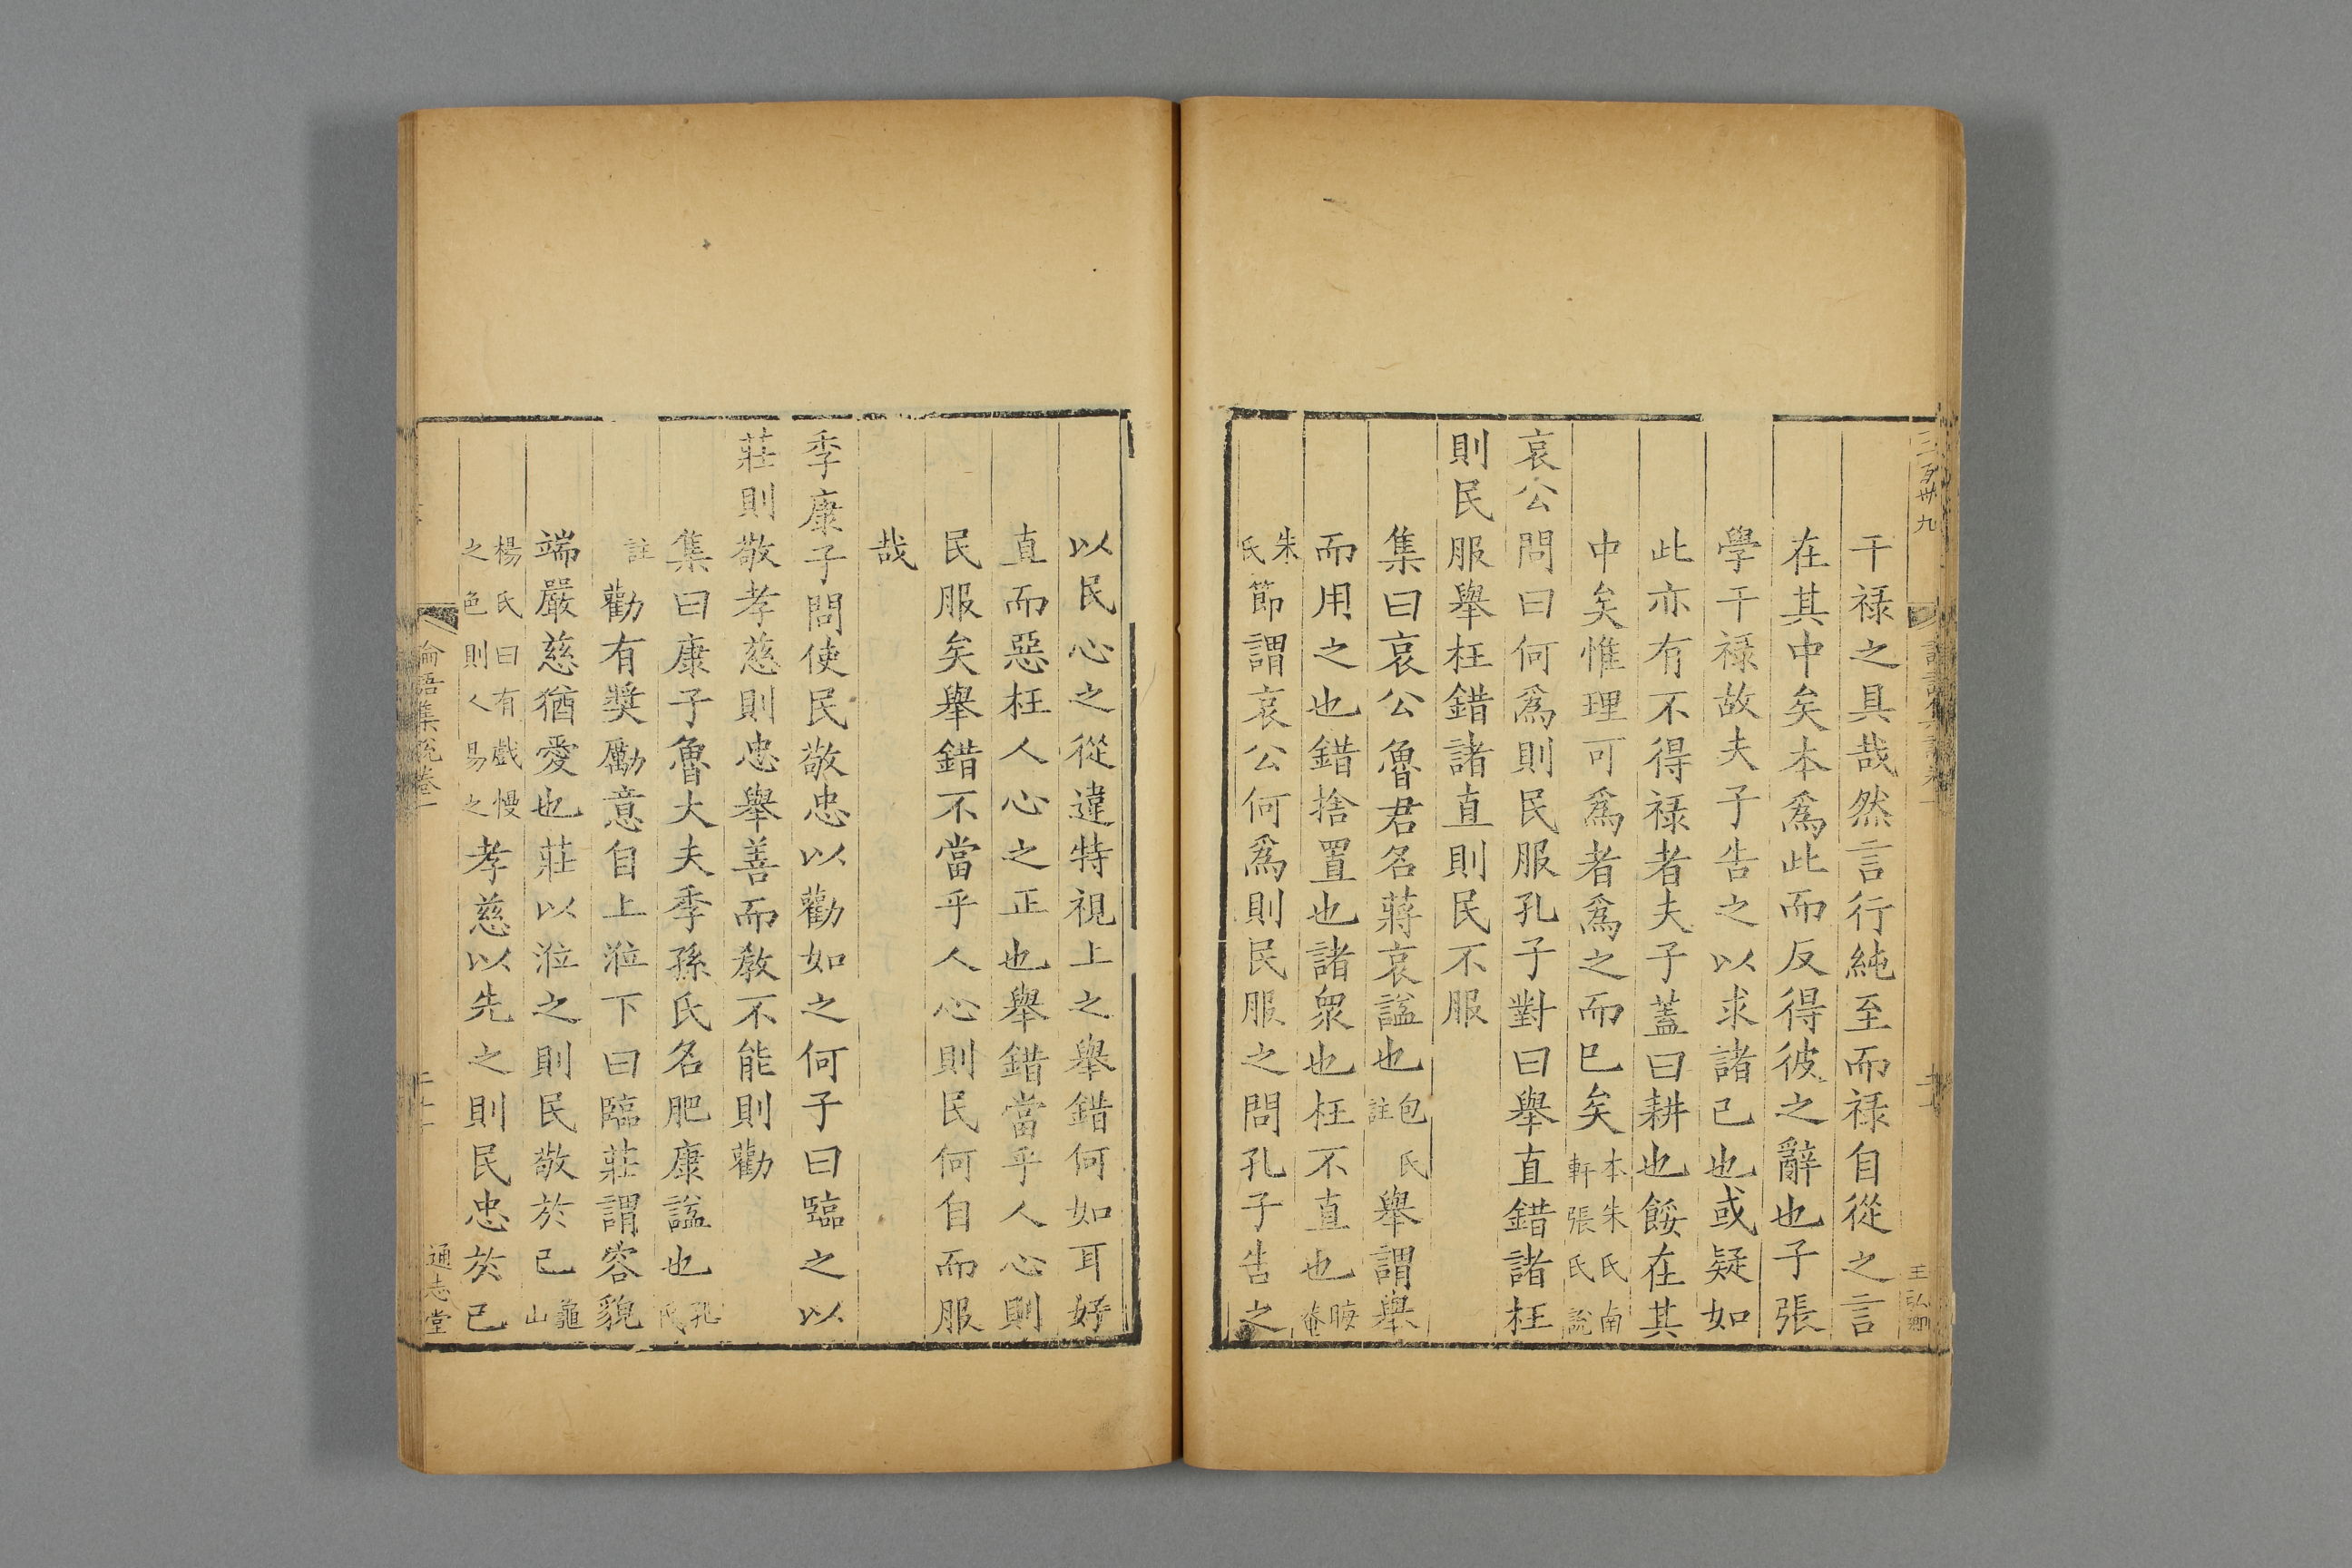 干禄之具哉然言行純至而禄自從之言
在其中矣本爲此而反得彼之辭也子張
學干禄故夫子告之以求諸己也或疑如
此亦有不得禄者夫子蓋曰耕也餒在其
中矣惟理可爲者爲之而已矣本朱氏南軒張氏說
哀公問曰何爲則民服孔子對曰舉直錯諸枉
則民服舉枉錯諸直則民不服
集曰哀公魯君名蔣哀諡也包氏註舉謂舉
而用之也錯捨置也諸衆也枉不直也晦菴
朱氏節謂哀公何爲則民服之問孔子告之
王弘卿
以民心之從違特視上之舉錯何如耳好
直而惡枉人心之正也舉錯當乎人心則
民服矣舉錯不當乎人心則民何自而服
哉
季康子問使民敬忠以勸如之何子曰臨之以
莊則敬孝慈則忠舉善而教不能則勸
集曰康子魯大夫季孫氏名肥康諡也孔氏
註勸有奬勵意自上涖下曰臨莊謂容貌
端嚴慈猶愛也莊以涖之則民敬於己龜山
楊氏曰有戲慢之色則人易之孝慈以先之則民忠於己
論語集說卷一
通志堂